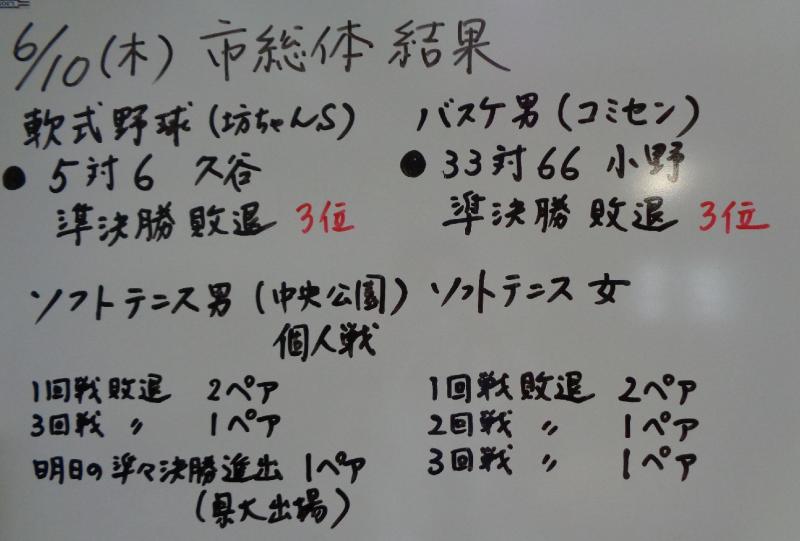 6/10(木) 市総体 結果
軟式野球(坊ちゃんS)
● 5対6 久谷
準決勝敗退 3位
バスケ男(コミセン)
● 33対66 小野
準決勝敗退 3位
ソフトテニス男(中央公園)
個人戦
1回戦敗退 2ペア
3回戦 〃 1ペア
明日の準々決勝進出 1ペア
(県大出場)
ソフトテニス 女
1回戦敗退 2ペア
2回戦 〃 1ペア
3回戦 〃 1ペア